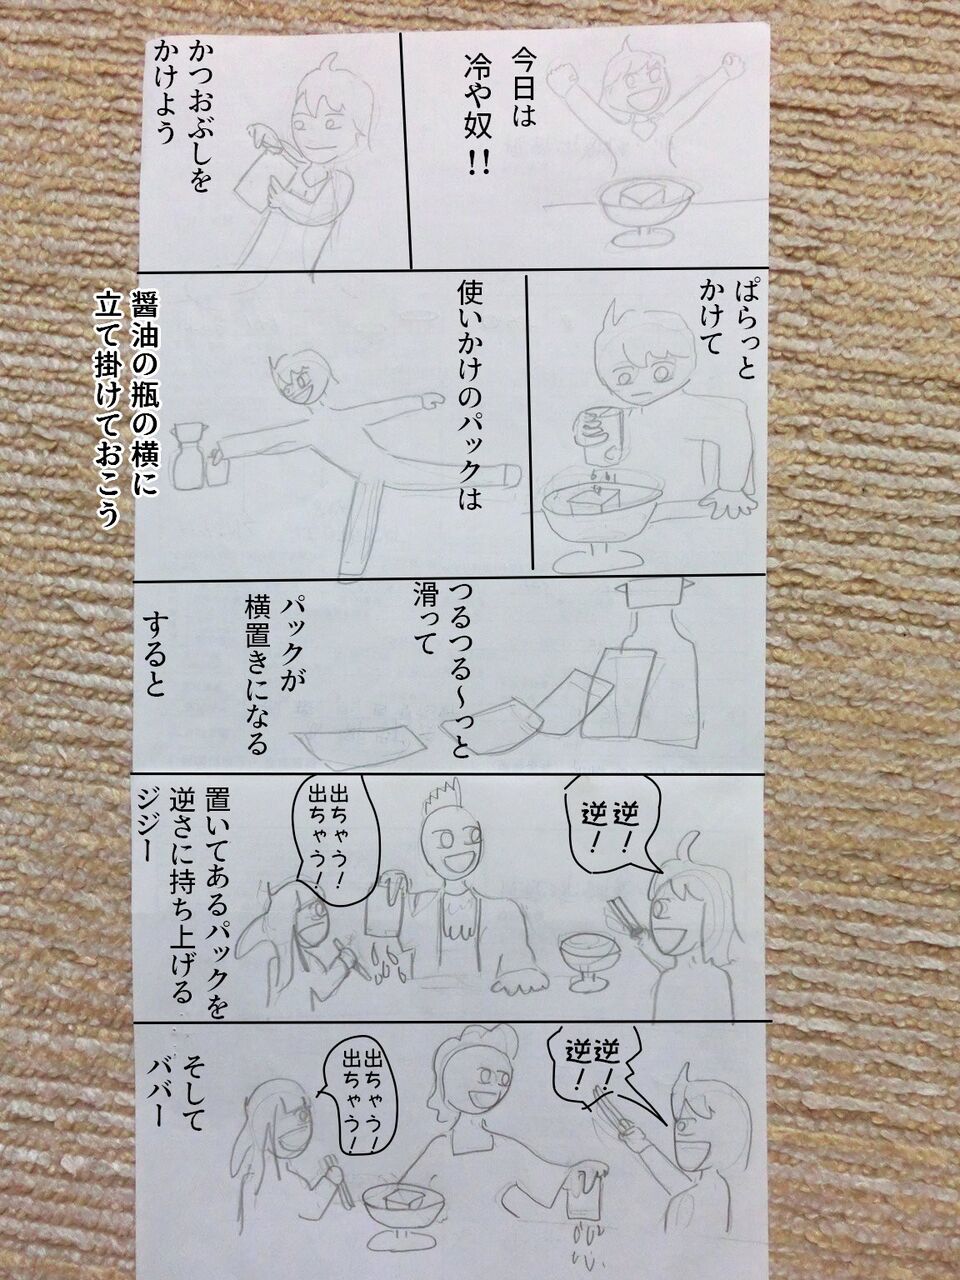 今日は
冷や奴!!
かつおぶしを
かけよう
ぱらっと
かけて
使いかけのパックは
醤油の瓶の横に
立て掛けておこう
つるつる～っと
滑って
パックが
横置きになる
すると
逆！
逆！
出ちゃう！
出ちゃう！
置いてあるパックを
逆さに持ち上げる
ジジー
逆！
逆！
出ちゃう！
出ちゃう！
そして
ババー